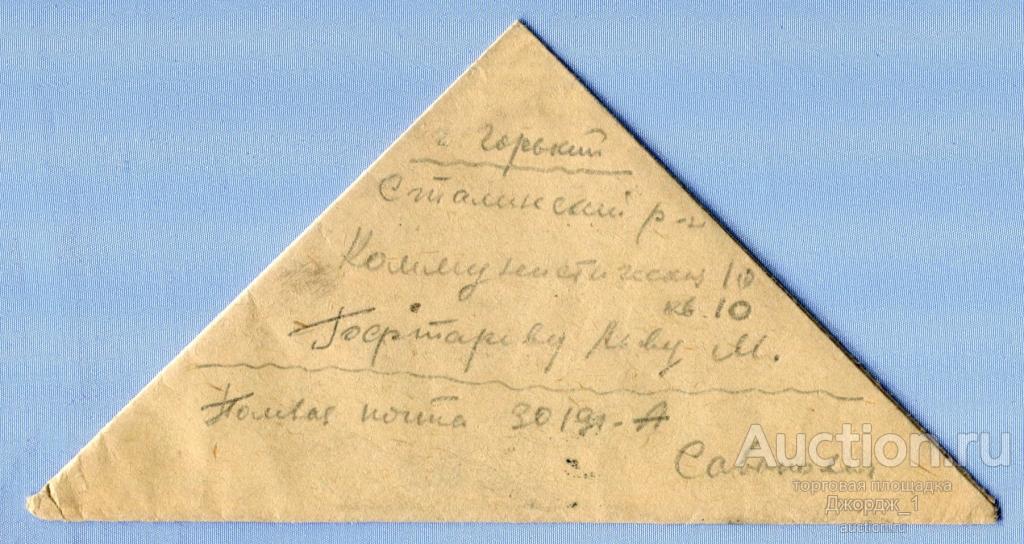 г. Горький
Сталинский р-н
Коммунистическая 10
кв. 10
Льву М.
Полевая почта
Auction.ru
торговая площадка
Джордж_1
auction.ru